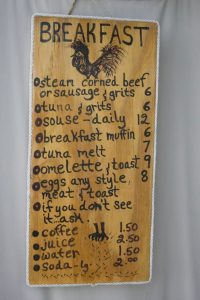 BREAKFAST
steam corned beef
or sausage & grits 6
tuna & grits 6
souse - daily 12
breakfast muffin 6
tuna melt 7
omelette & toast 9
eggs any style, 8
meat & toast
if you don't see
it...ask!
coffee 1.50
juice 2.50
water 1.50
soda 2.00